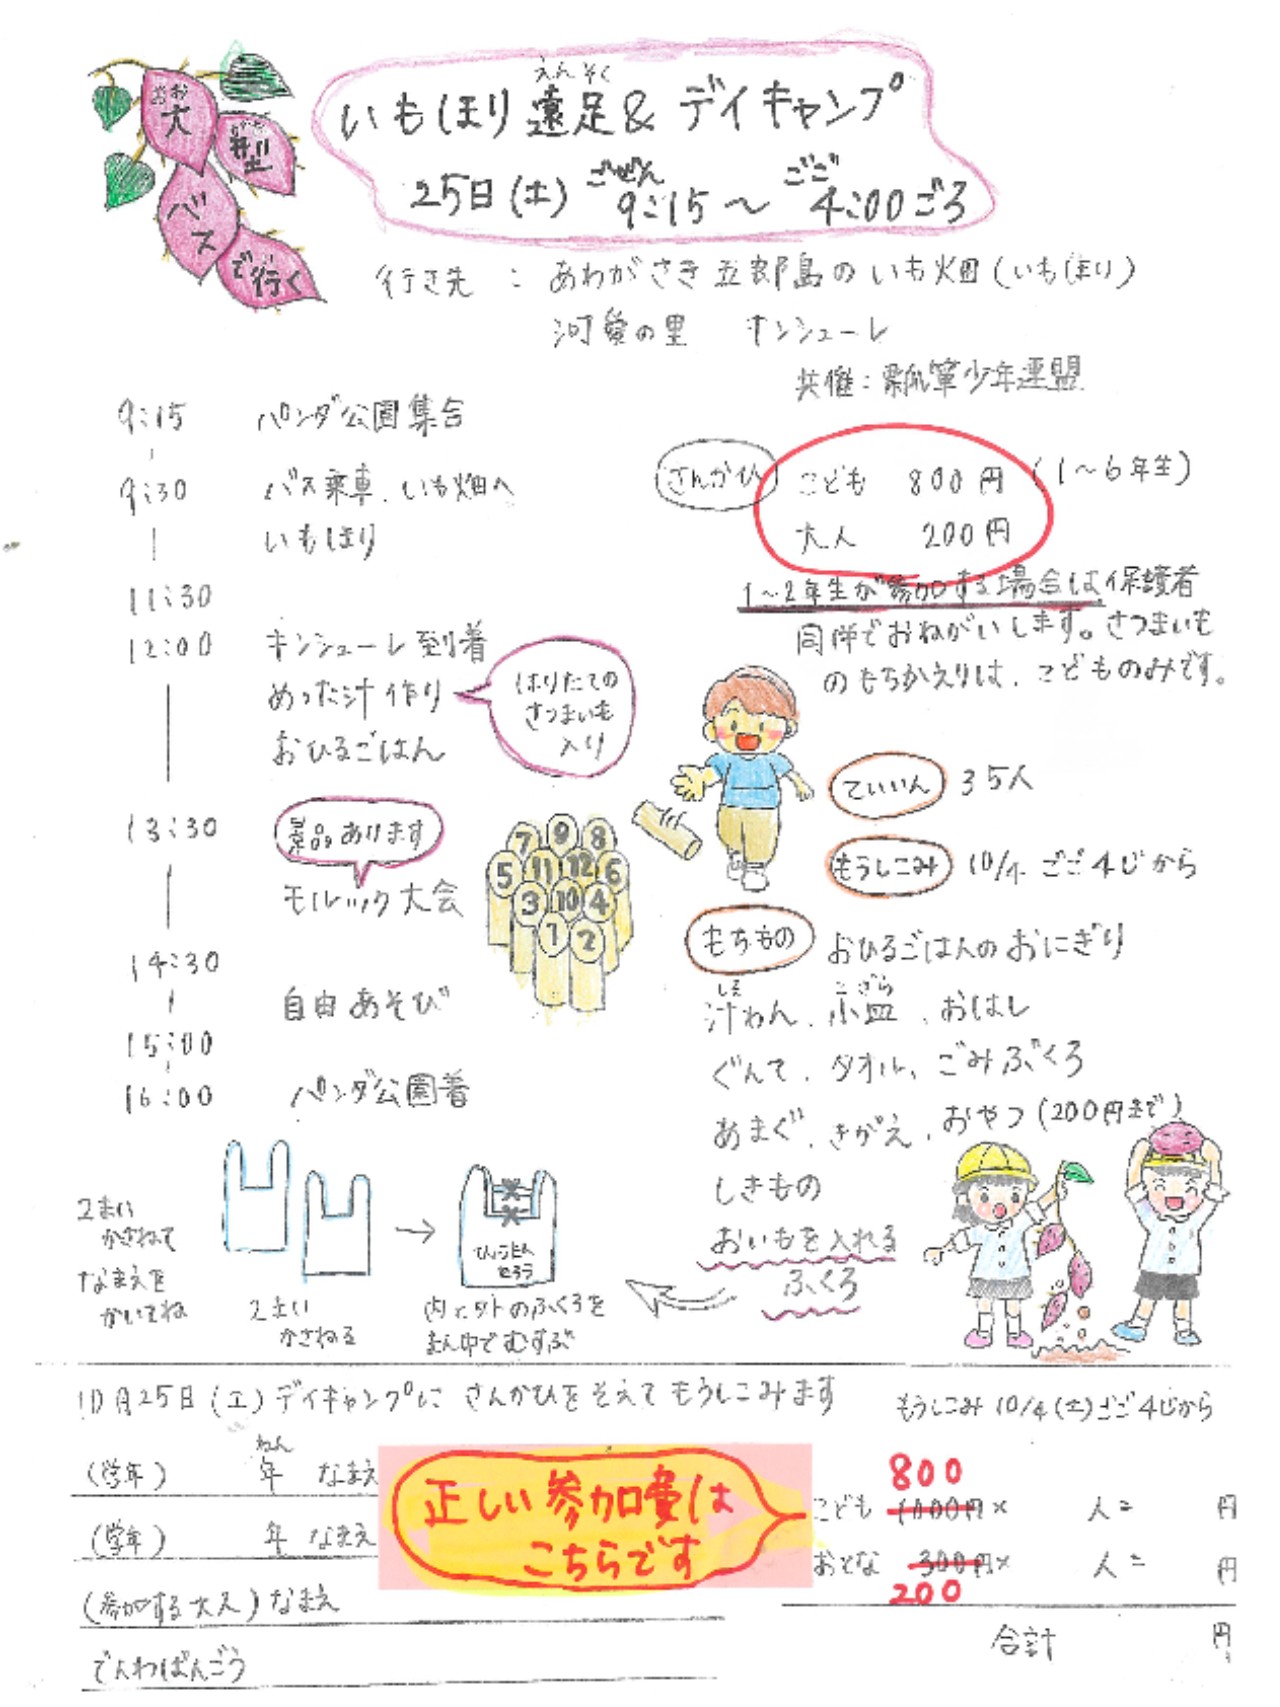 大型バスで行く
いもほり遠足& デイキャンプ
えんそく
25日(土) ごぜん 9:15 ～ ごご 4:00ごろ
行き先 : あわがさき 五郎島の いも畑(いもほり)
河愛の里 キンシューレ
共催: 瓢箪少年連盟
9:15 パンダ公園集合
9:30 バス乗車、いも畑へ
いもほり
11:30
12:00 キンシューレ到着
めった汁 作り
ほりたての
さつまいも
入り
おひるごはん
13:30
景品あります
モルック大会
14:30
自由あそび
15:00
16:00 パンダ公園着
さんかひ こども 800円 (1～6年生)
大人 200円
1～2年生が参加する場合は、保護者
同伴でおねがいします。さつまいも
のもちかえりは、こどものみです。
ていいん 35人
もうしこみ 10/4 ごご4じから
もちもの おひるごはんのおにぎり
汁わん、小皿、おはし
しる こざら
ぐんて、タオル、ごみぶくろ
あまぐ、きがえ、おやつ(200円まで)
しきもの
おいもを入れる
ふくろ
7 9 8
5 11 12 6
3 10 4
1 2
2まい
かさねて
なまえを
かいてね
2まい
かさねる
ひょうたん
たろう
内と外のふくろを
まん中でむすぶ
10月25日(土)デイキャンプに さんかひをそえて もうしこみます
もうしこみ 10/4(土)ごご4じから
(学年) 年 なまえ
ねん
(学年) 年 なまえ
(参加する大人) なまえ
でんわばんごう
正しい参加費は
こちらです
800
こども 1000円× 人= 円
おとな 300円× 人= 円
200
合計 円